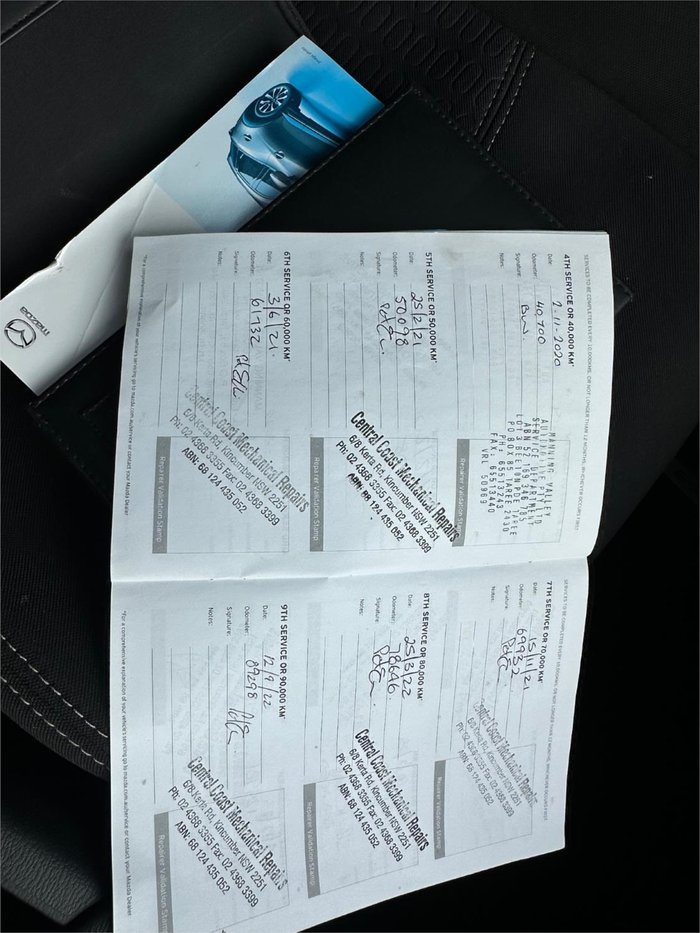 SERVICES TO BE COMPLETED EVERY 10,000KMS, OR NOT LONGER THAN 12 MONTHS, WHICHEVER OCCURS FIRST
4TH SERVICE OR 40,000 KM*
Date: 2-11-2020
Odometer: 40,700
Signature:
Notes:
MANNING VALLEY
SERVICE DEPARTMENT
ABN 52 109 346 785
PO BOX 85 TAREE 2430
PH: 65513243
FAX: 65513440
VRL 50969
5TH SERVICE OR 50,000 KM*
Date: 25/2/21
Odometer: 50,098
Signature:
Notes:
Central Coast Mechanical Repairs
6/8 Kerta Rd, Kincumber NSW 2251
Ph: 02 4368 3355 Fax: 02 4368 3399
ABN: 68 124 435 052
Repairer Validation Stamp
6TH SERVICE OR 60,000 KM*
Date: 3/6/21
Odometer: 61,132
Signature:
Notes:
Central Coast Mechanical Repairs
6/8 Kerta Rd, Kincumber NSW 2251
Ph: 02 4368 3355 Fax: 02 4368 3399
ABN: 68 124 435 052
Repairer Validation Stamp
*For a comprehensive explanation of your vehicle's servicing go to mazda.com.au/service or contact your Mazda Dealer.
7TH SERVICE OR 70,000 KM*
Date: 15/11/21
Odometer: 69932
Signature:
Notes:
Central Coast Mechanical Repairs
6/8 Kerta Rd, Kincumber NSW 2251
Ph: 02 4368 3355 Fax: 02 4368 3399
ABN: 68 124 435 052
Repairer Validation Stamp
8TH SERVICE OR 80,000 KM*
Date: 25/3/22
Odometer: 78646
Signature:
Notes:
Central Coast Mechanical Repairs
6/8 Kerta Rd, Kincumber NSW 2251
Ph: 02 4368 3355 Fax: 02 4368 3399
ABN: 68 124 435 052
Repairer Validation Stamp
9TH SERVICE OR 90,000 KM*
Date: 12/9/22
Odometer: 89298
Signature:
Notes:
Central Coast Mechanical Repairs
6/8 Kerta Rd, Kincumber NSW 2251
Ph: 02 4368 3355 Fax: 02 4368 3399
ABN: 68 124 435 052
Repairer Validation Stamp
*For a comprehensive explanation of your vehicle's servicing go to mazda.com.au/service or contact your Mazda Dealer.
mazda